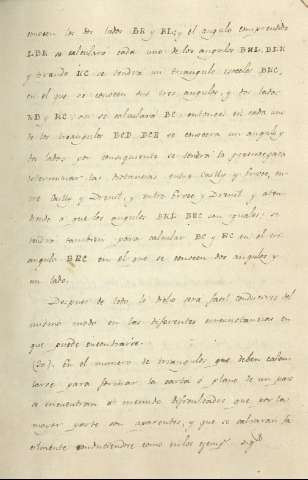 conocen los dos lados BK y BL; y el angulo comprendido
LBK se calculará cada uno de los angulos BKL, BLK
y tirando KC se tendra un triangulo BKC,
en el que se conocen sus tres angulos y dos lados
KB y KC; se calculará BC: entonces en cada uno
de los triangulos BCD, BCE se conocera un angulo y
dos lados, por consiguiente se tendrá lo
determinar las distancias entre y
tre y y entre y y aten
diendo a que los angulos BKL BKC son iguales; se
tendra tambien para calcular BC y KC en el tri
angulo BKC en el que se conocen dos angulos y
un lado.
Despues de esto, le debe será facil conducirse del
mismo modo en las diferentes circunstancias en
que puede encontrarse.
En el numero de triangulos que deben calcu
larse para formar la carta ó plano de un pais
se encuentran al menudo dificultades que por la
mayor parte son aparentes, y que se salvarán fa
cilmente conduciendose como en los